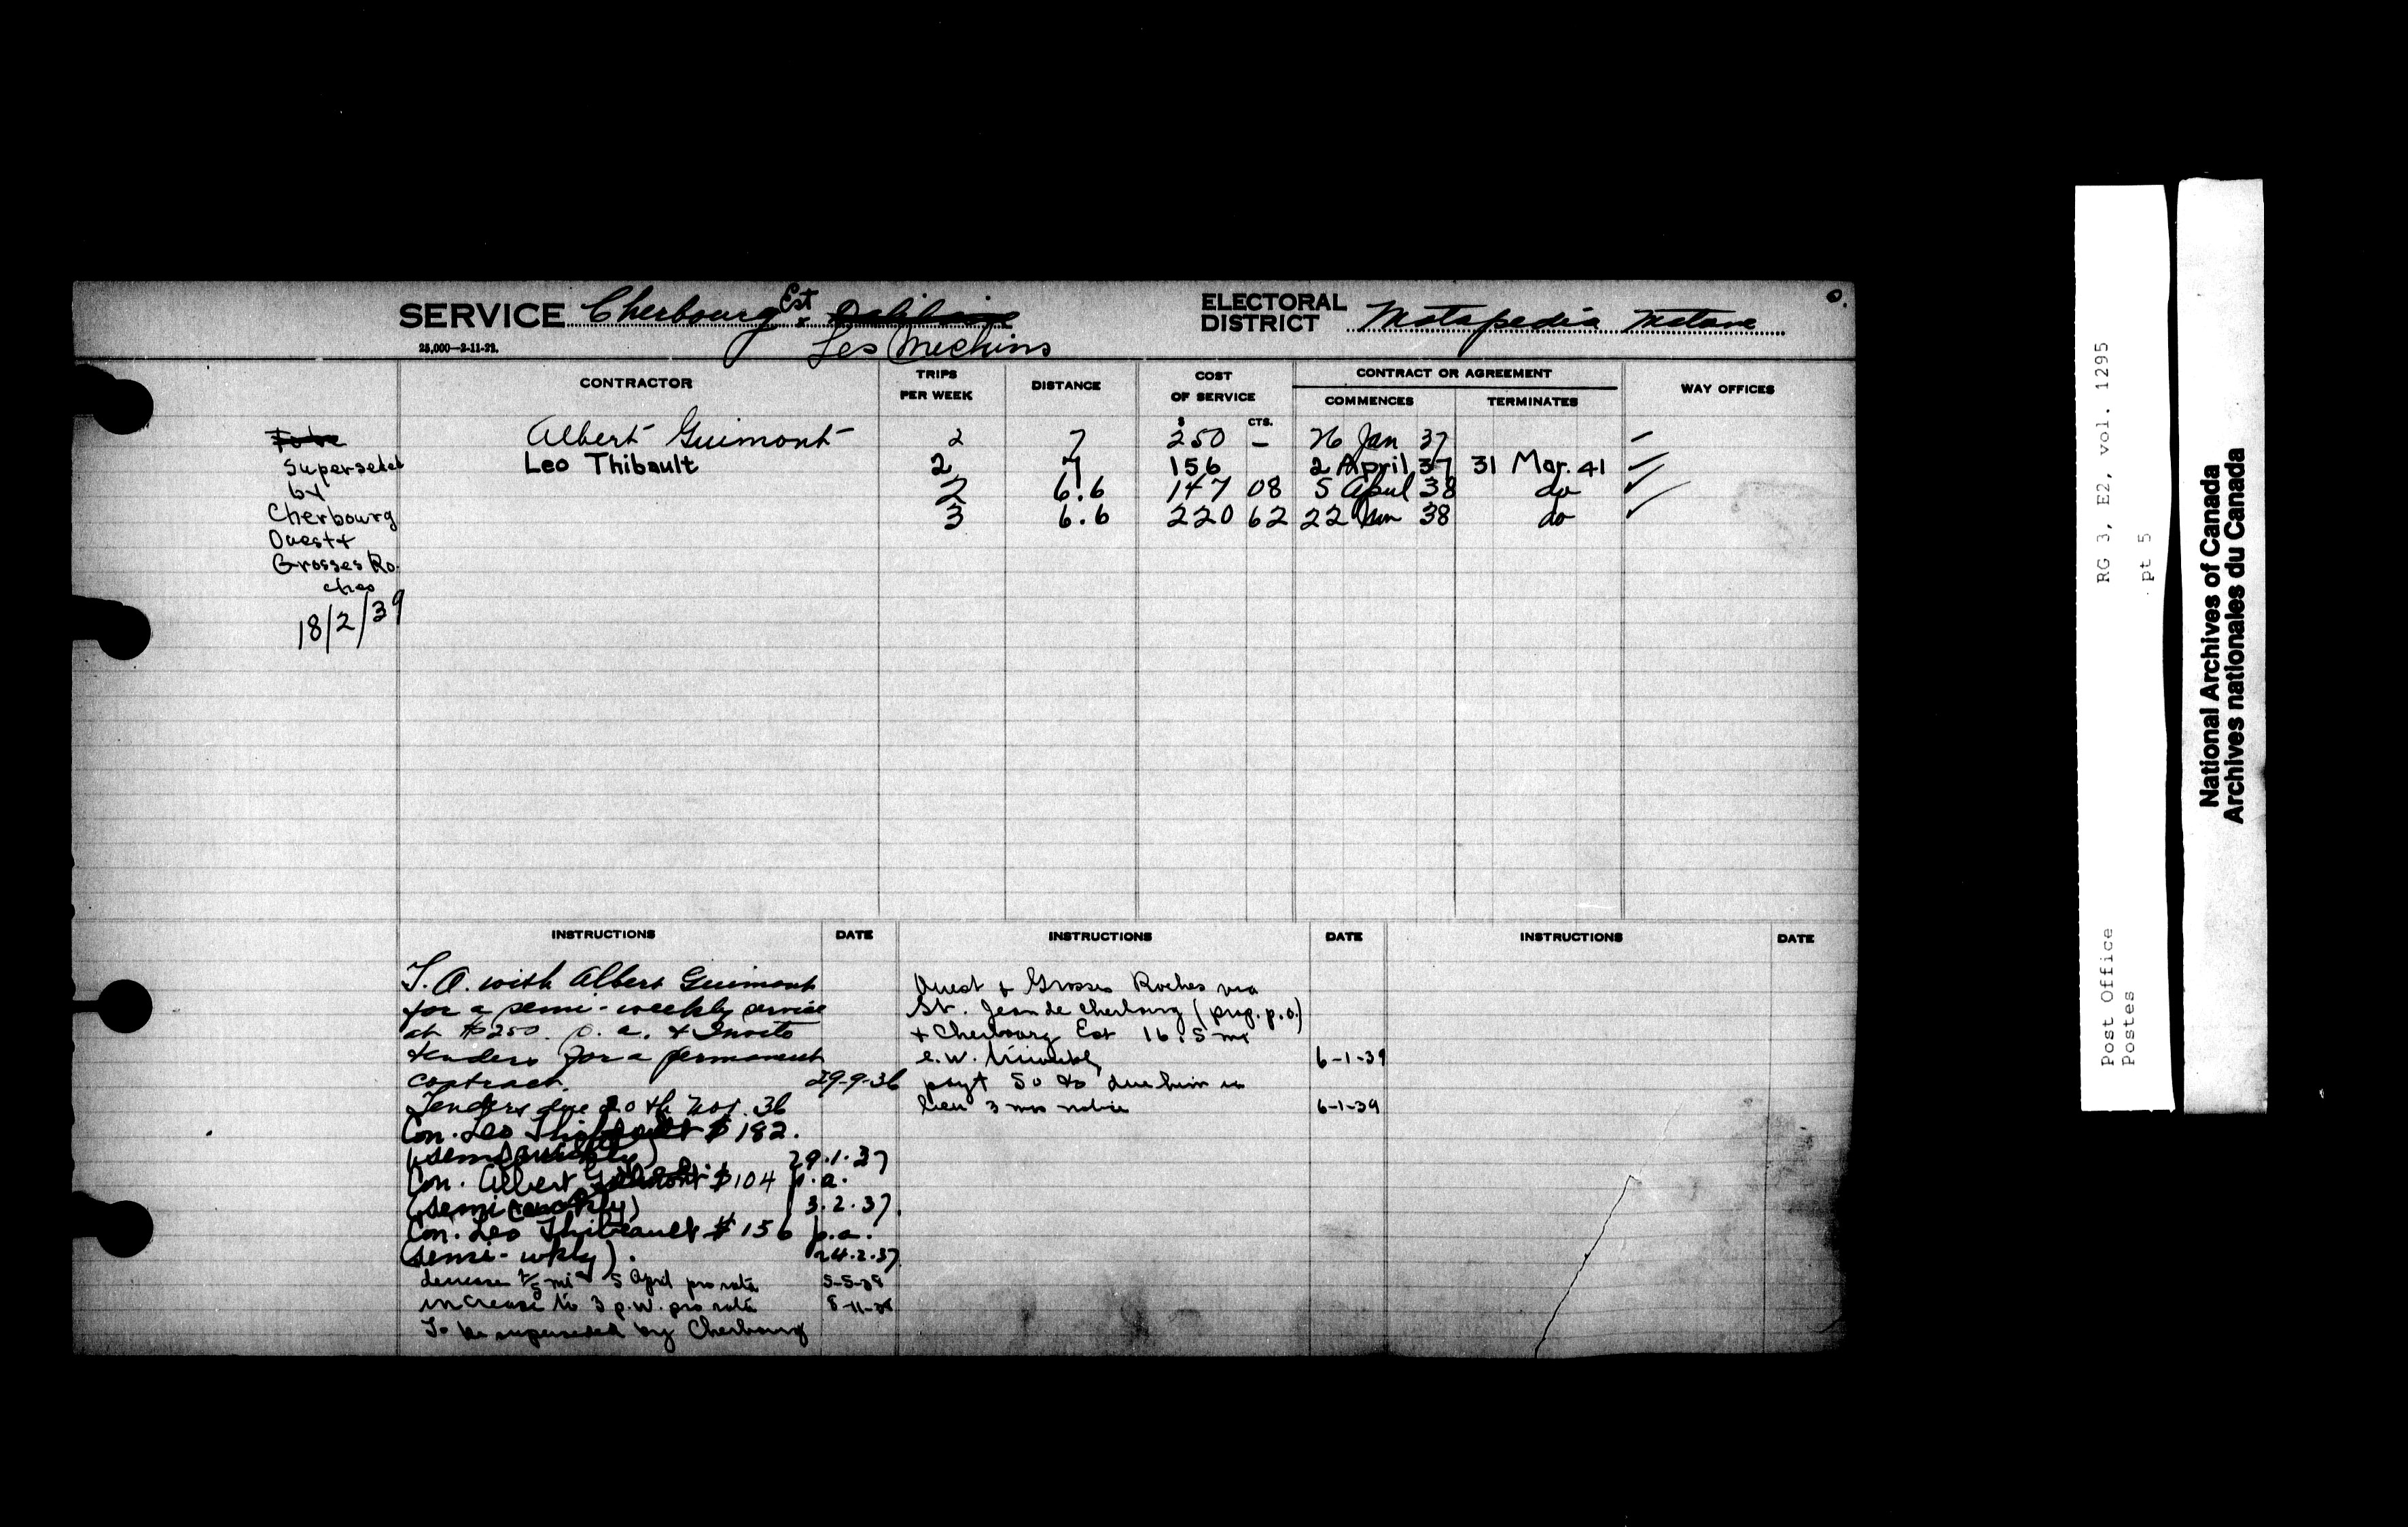 SERVICE Cherbourg Est &
Les Mechins
ELECTORAL DISTRICT Matapedia Matane
25,000—2-11-22.
CONTRACTOR
TRIPS PER WEEK
DISTANCE
COST OF SERVICE
CONTRACT OR AGREEMENT
COMMENCES
TERMINATES
WAY OFFICES
$ CTS.
Albert Guimont 2 7 250 — 26 Jan 37
Leo Thibault 2 7 156 2 April 37 31 Mar. 41
2 6.6 147 08 5 April 38 do
3 6.6 220 62 22 38 do
To be
Superseded
by
Cherbourg
Ouest &
Grosses Ro-
ches
18/2/39
INSTRUCTIONS DATE
T. A. with Albert Guimont
for a semi-weekly service
at $250. p. a. & Invite
tenders for a permanent
contract. 29-9-36
Tenders due 20th Nov. 36
Con. Leo Thibeault $182.
(semi weekly) 29.1.37
Con. Albert Guimont $104 p.a.
(semi weekly) 3.2.37.
Con. Leo Thibeault $156 p.a.
(semi-wkly). 24.2.37
decrease mi 5 April pro rata 5-5-38
increase to 3 p.w. pro rata
To be superseded by Cherbourg
INSTRUCTIONS DATE
Ouest & Grosses Roches via
St. Jean de Cherbourg (prop. p.o.)
& Cherbourg Est 16.5 mi
6-1-39
payt 50 due him in
lieu 3 mos notice 6-1-39
INSTRUCTIONS DATE
RG 3, E2, vol. 1295
pt 5
Post Office
Postes
National Archives of Canada
Archives nationales du Canada